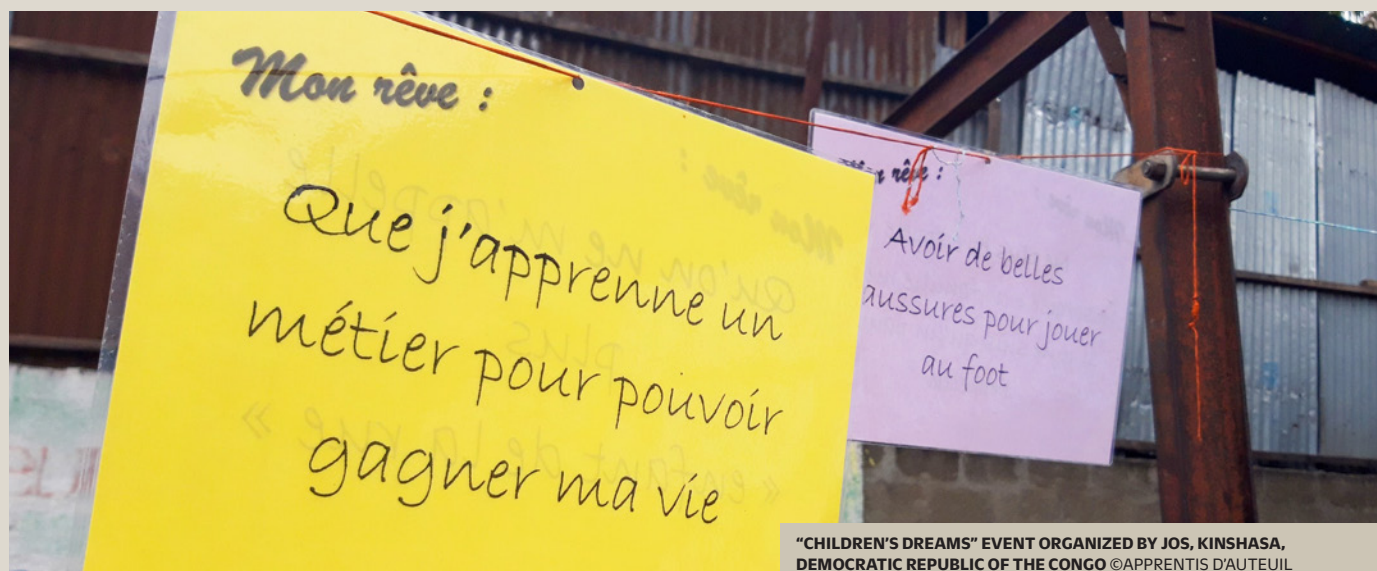 Mon rêve :
Que j'apprenne un
métier pour pouvoir
gagner ma vie
Mon rêve :
Qu'on ne m'appelle
plus
« enfant de la rue »
rêve :
Avoir de belles
aussures pour jouer
au foot
"CHILDREN'S DREAMS" EVENT ORGANIZED BY JOS, KINSHASA,
DEMOCRATIC REPUBLIC OF THE CONGO ©APPRENTIS D'AUTEUIL